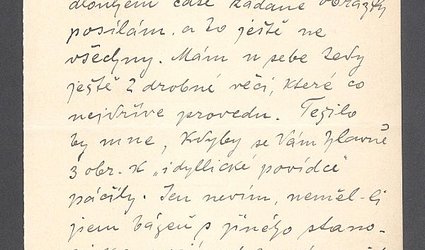 dlouhém čase žádané obrázky
posílám. a to ještě ne
všechny. Mám u sebe tedy
ještě 2 drobné věci, které co
nejdříve provedu. Těšilo
by mne, kdyby se Vám hlavně
3 obr. k „idyllické povídce"
páčily. Jen nevím, neměl-li
jsem báseň s jiného stano-